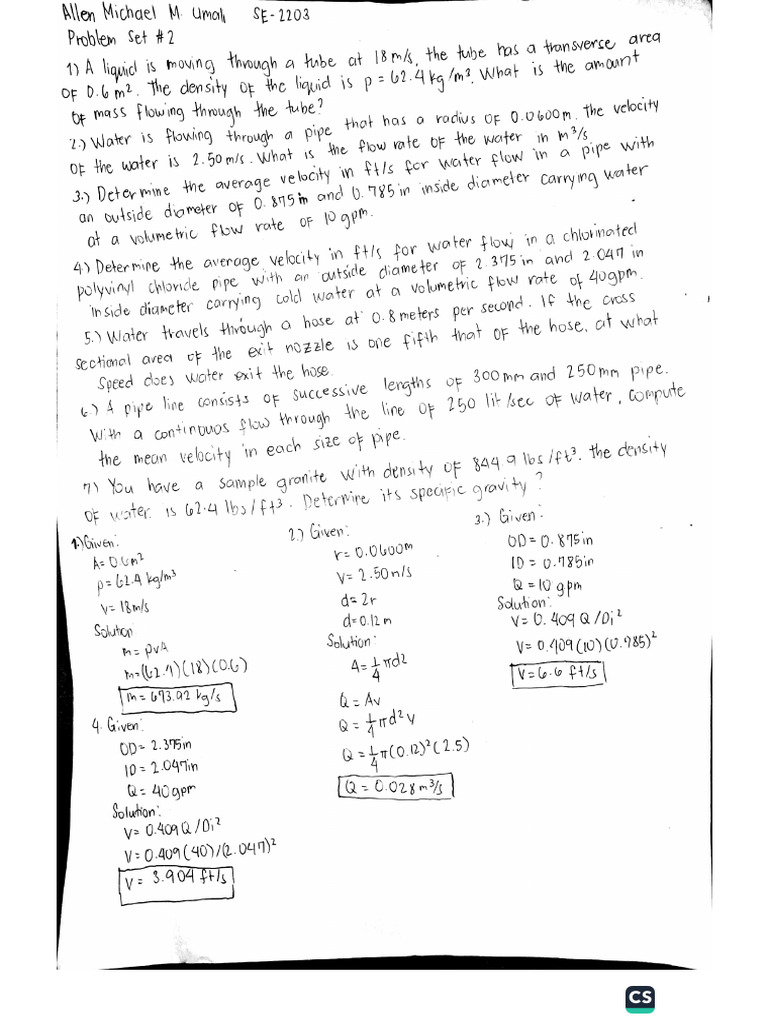 Allen Michael M. Umali SE-2203
Problem Set #2
1) A liquid is moving through a tube at 18m/s, the tube has a transverse area
of 0.6m². The density of the liquid is p = 62.4 kg/m³. What is the amount
of mass flowing through the tube?
2.) Water is flowing through a pipe that has a radius of 0.0600m. The velocity
of the water is 2.50m/s. What is the flow rate of the water in m³/s
3.) Determine the average velocity in ft/s for water flow in a pipe with
an outside diameter of 0.875in and 0.785in inside diameter carrying water
at a volumetric flow rate of 10gpm.
4.) Determine the average velocity in ft/s for water flow in a chlorinated
polyvinyl chloride pipe with an outside diameter of 2.375in and 2.047in
inside diameter carrying cold water at a volumetric flow rate of 40gpm.
5.) Water travels through a hose at 0.8meters per second. If the cross
sectional area of the exit nozzle is one fifth that of the hose, at what
speed does water exit the hose.
6.) A pipe line consists of successive lengths of 300mm and 250mm pipe.
With a continuous flow through the line of 250 lit/sec of water, compute
the mean velocity in each size of pipe.
7.) You have a sample granite with density of 844.9 lbs/ft³. the density
of water is 62.4 lbs/ft³. Determine its specific gravity?
1.) Given:
A= 0.6m²
p= 62.4 kg/m³
v= 18m/s
Solution
m= pvA
m=(62.4)(18)(0.6)
m= 673.92 kg/s
2.) Given:
r= 0.0600m
V= 2.50m/s
d= 2r
d= 0.12m
Solution:
A= 1/4 πd2
Q= Av
Q= 1/4 πd²v
Q= 1/4 π(0.12)²(2.5)
Q= 0.028m³/s
3.) Given:
OD= 0.875in
ID= 0.785in
Q= 10 gpm
Solution:
V= 0.409 Q/Di²
V= 0.409(10)(0.785)²
V= 6.6 ft/s
4. Given:
OD= 2.375in
ID= 2.047in
Q= 40gpm
Solution:
V= 0.409Q/Di²
V= 0.409(40)/(2.047)²
V= 3.904 ft/s
CS